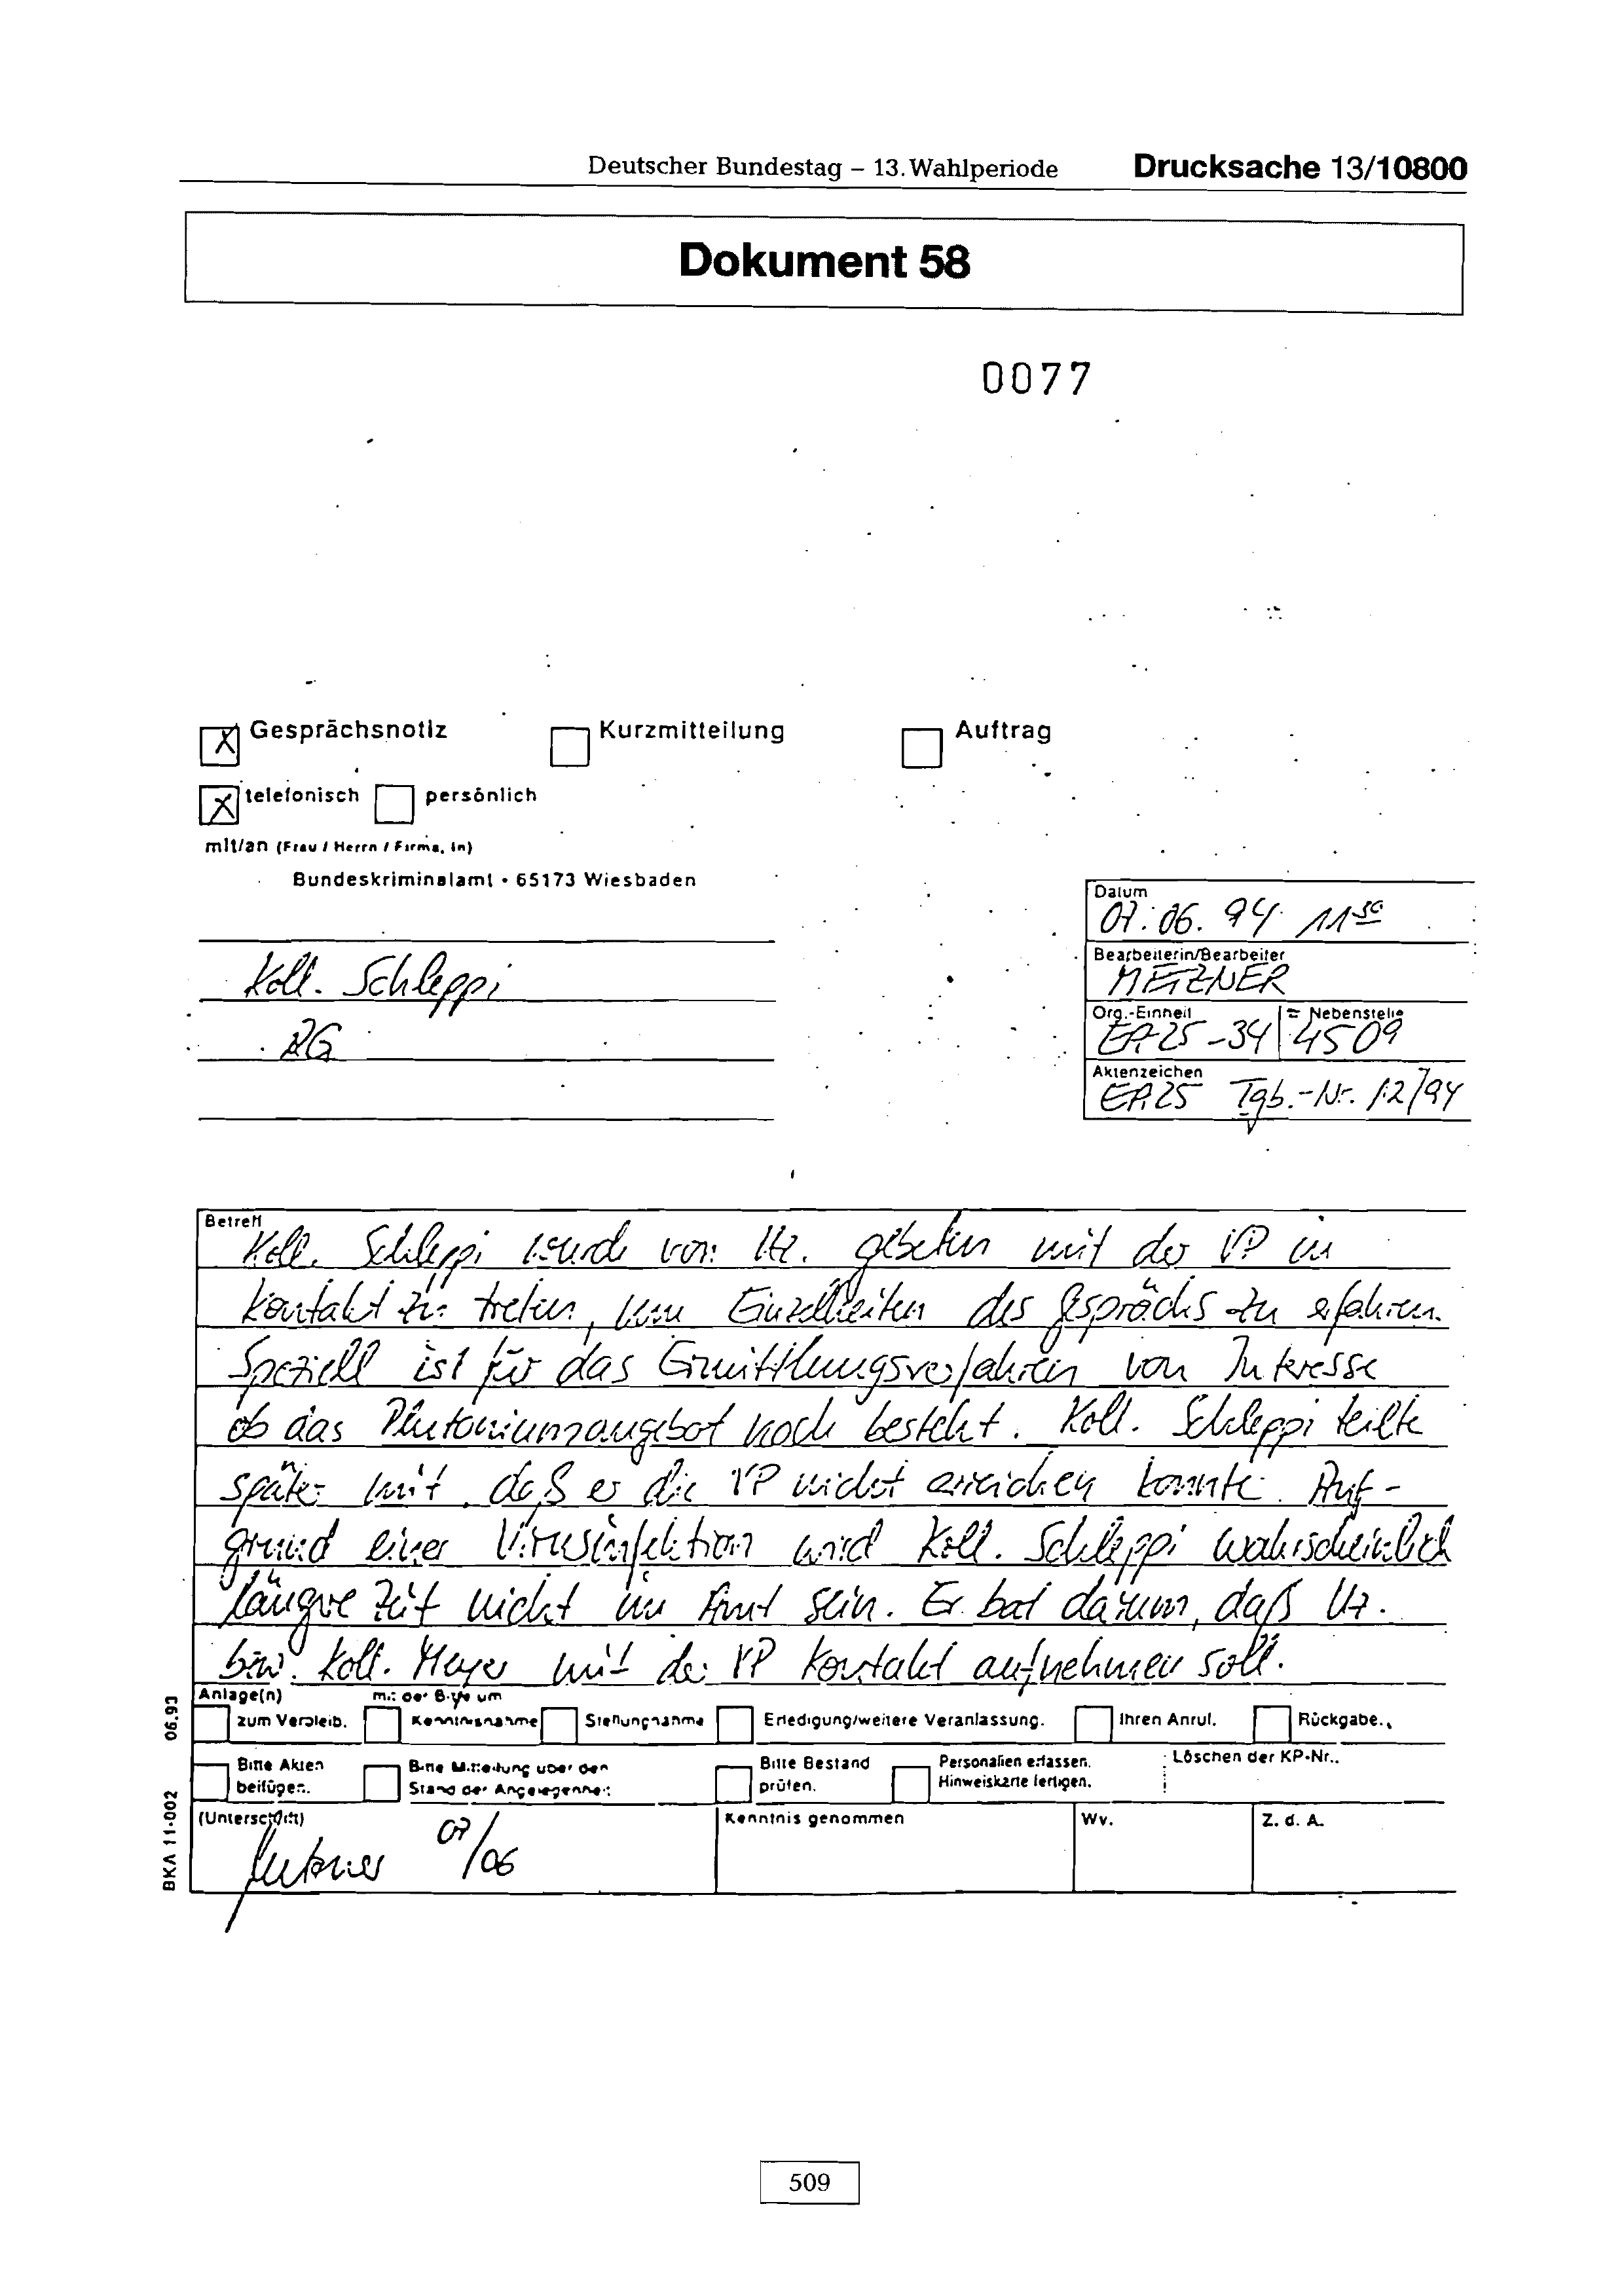 Deutscher Bundestag – 13. Wahlperiode Drucksache 13/10800
Dokument 58
0077
X Gesprächsnotiz Kurzmitteilung Auftrag
X telefonisch persönlich
mit/an (Frau / Herrn / Firma, in)
Bundeskriminalamt • 65173 Wiesbaden
Koll. Schleppi
RG
Datum
07.06.94 11 30
Bearbeiterin/Bearbeiter
METZNER
Org.-Einheit Nebenstelle
EA25-34 4509
Aktenzeichen
EA25 Tgb.-Nr. 12/94
Betreff
Koll. Schleppi wurde von Uz. gebeten mit der VP in
Kontakt zu treten, um Einzelheiten des Gesprächs zu erfahren.
Speziell ist für das Ermittlungsverfahren von Interesse
ob das Plutoniumangebot noch besteht. Koll. Schleppi teilte
später mit, daß er die VP nicht erreichen konnte. Auf-
grund einer Virusinfektion wird Koll. Schleppi wahrscheinlich
längere Zeit nicht im Amt sein. Er bat darum, daß Uz.
bzw. Koll. Meyer mit der VP Kontakt aufnehmen soll.
Anlage(n) mit der Bitte um
zum Verbleib. Kenntnisnahme Stellungnahme Erledigung/weitere Veranlassung. Ihren Anruf. Rückgabe.
Bitte Akten Bitte Mitteilung über den Bitte Bestand Personalien erfassen. Löschen der KP-Nr..
beifügen. Stand der Angelegenheit prüfen. Hinweiskarte fertigen.
(Unterschrift) Kenntnis genommen Wv. Z. d. A.
Metzner 07/06
BKA 11-002 06.93
509